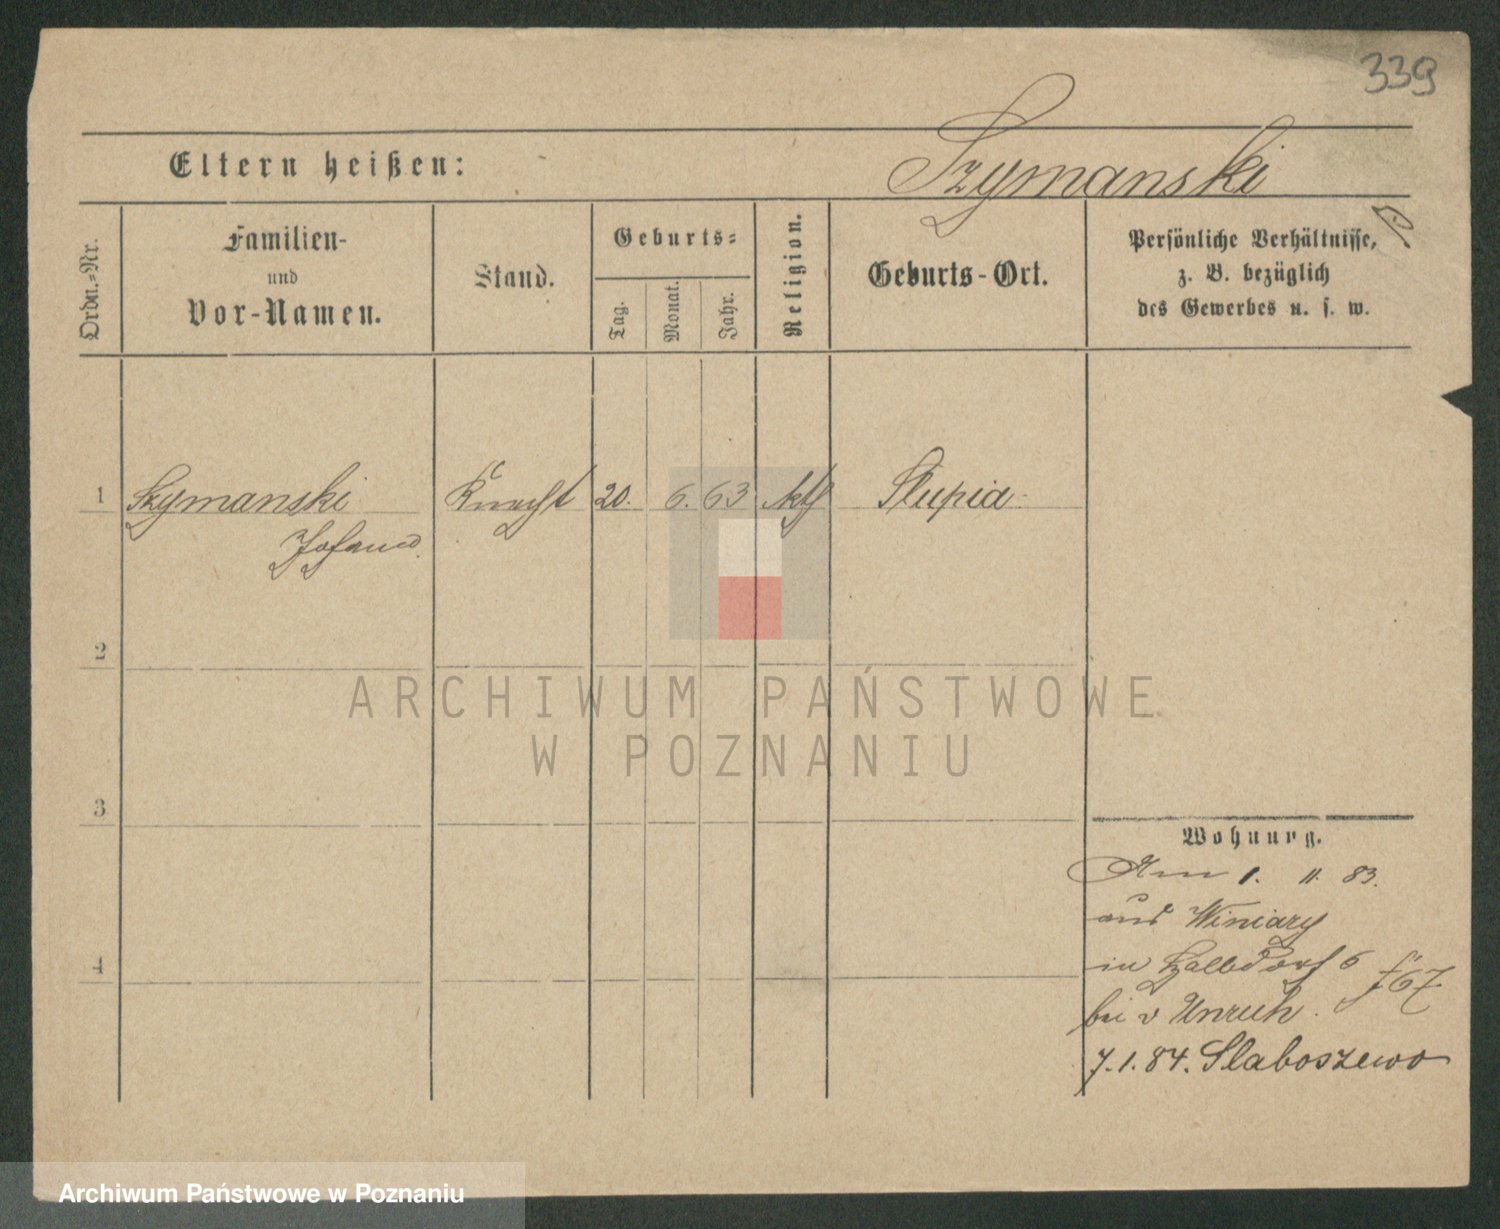 339
Szymanski
Eltern heißen:
Ordn.-Nr.
Familien-
und
Vor-Namen.
Stand.
Geburts-
Tag.
Monat.
Jahr.
Religion.
Geburts-Ort.
Persönliche Verhältnisse,
z. B. bezüglich
des Gewerbes u. s. w.
1 Szymanski Knecht 20. 6. 63 kth Slupia
Johann
2
ARCHIWUM PAŃSTWOWE
W POZNANIU
3
Wohnung.
Am 1. 11. 83.
aus Winiary
4
in Halbdorf 6 f 67
bei v Unruh.
7.1.84. Slaboszewo
Archiwum Państwowe w Poznaniu